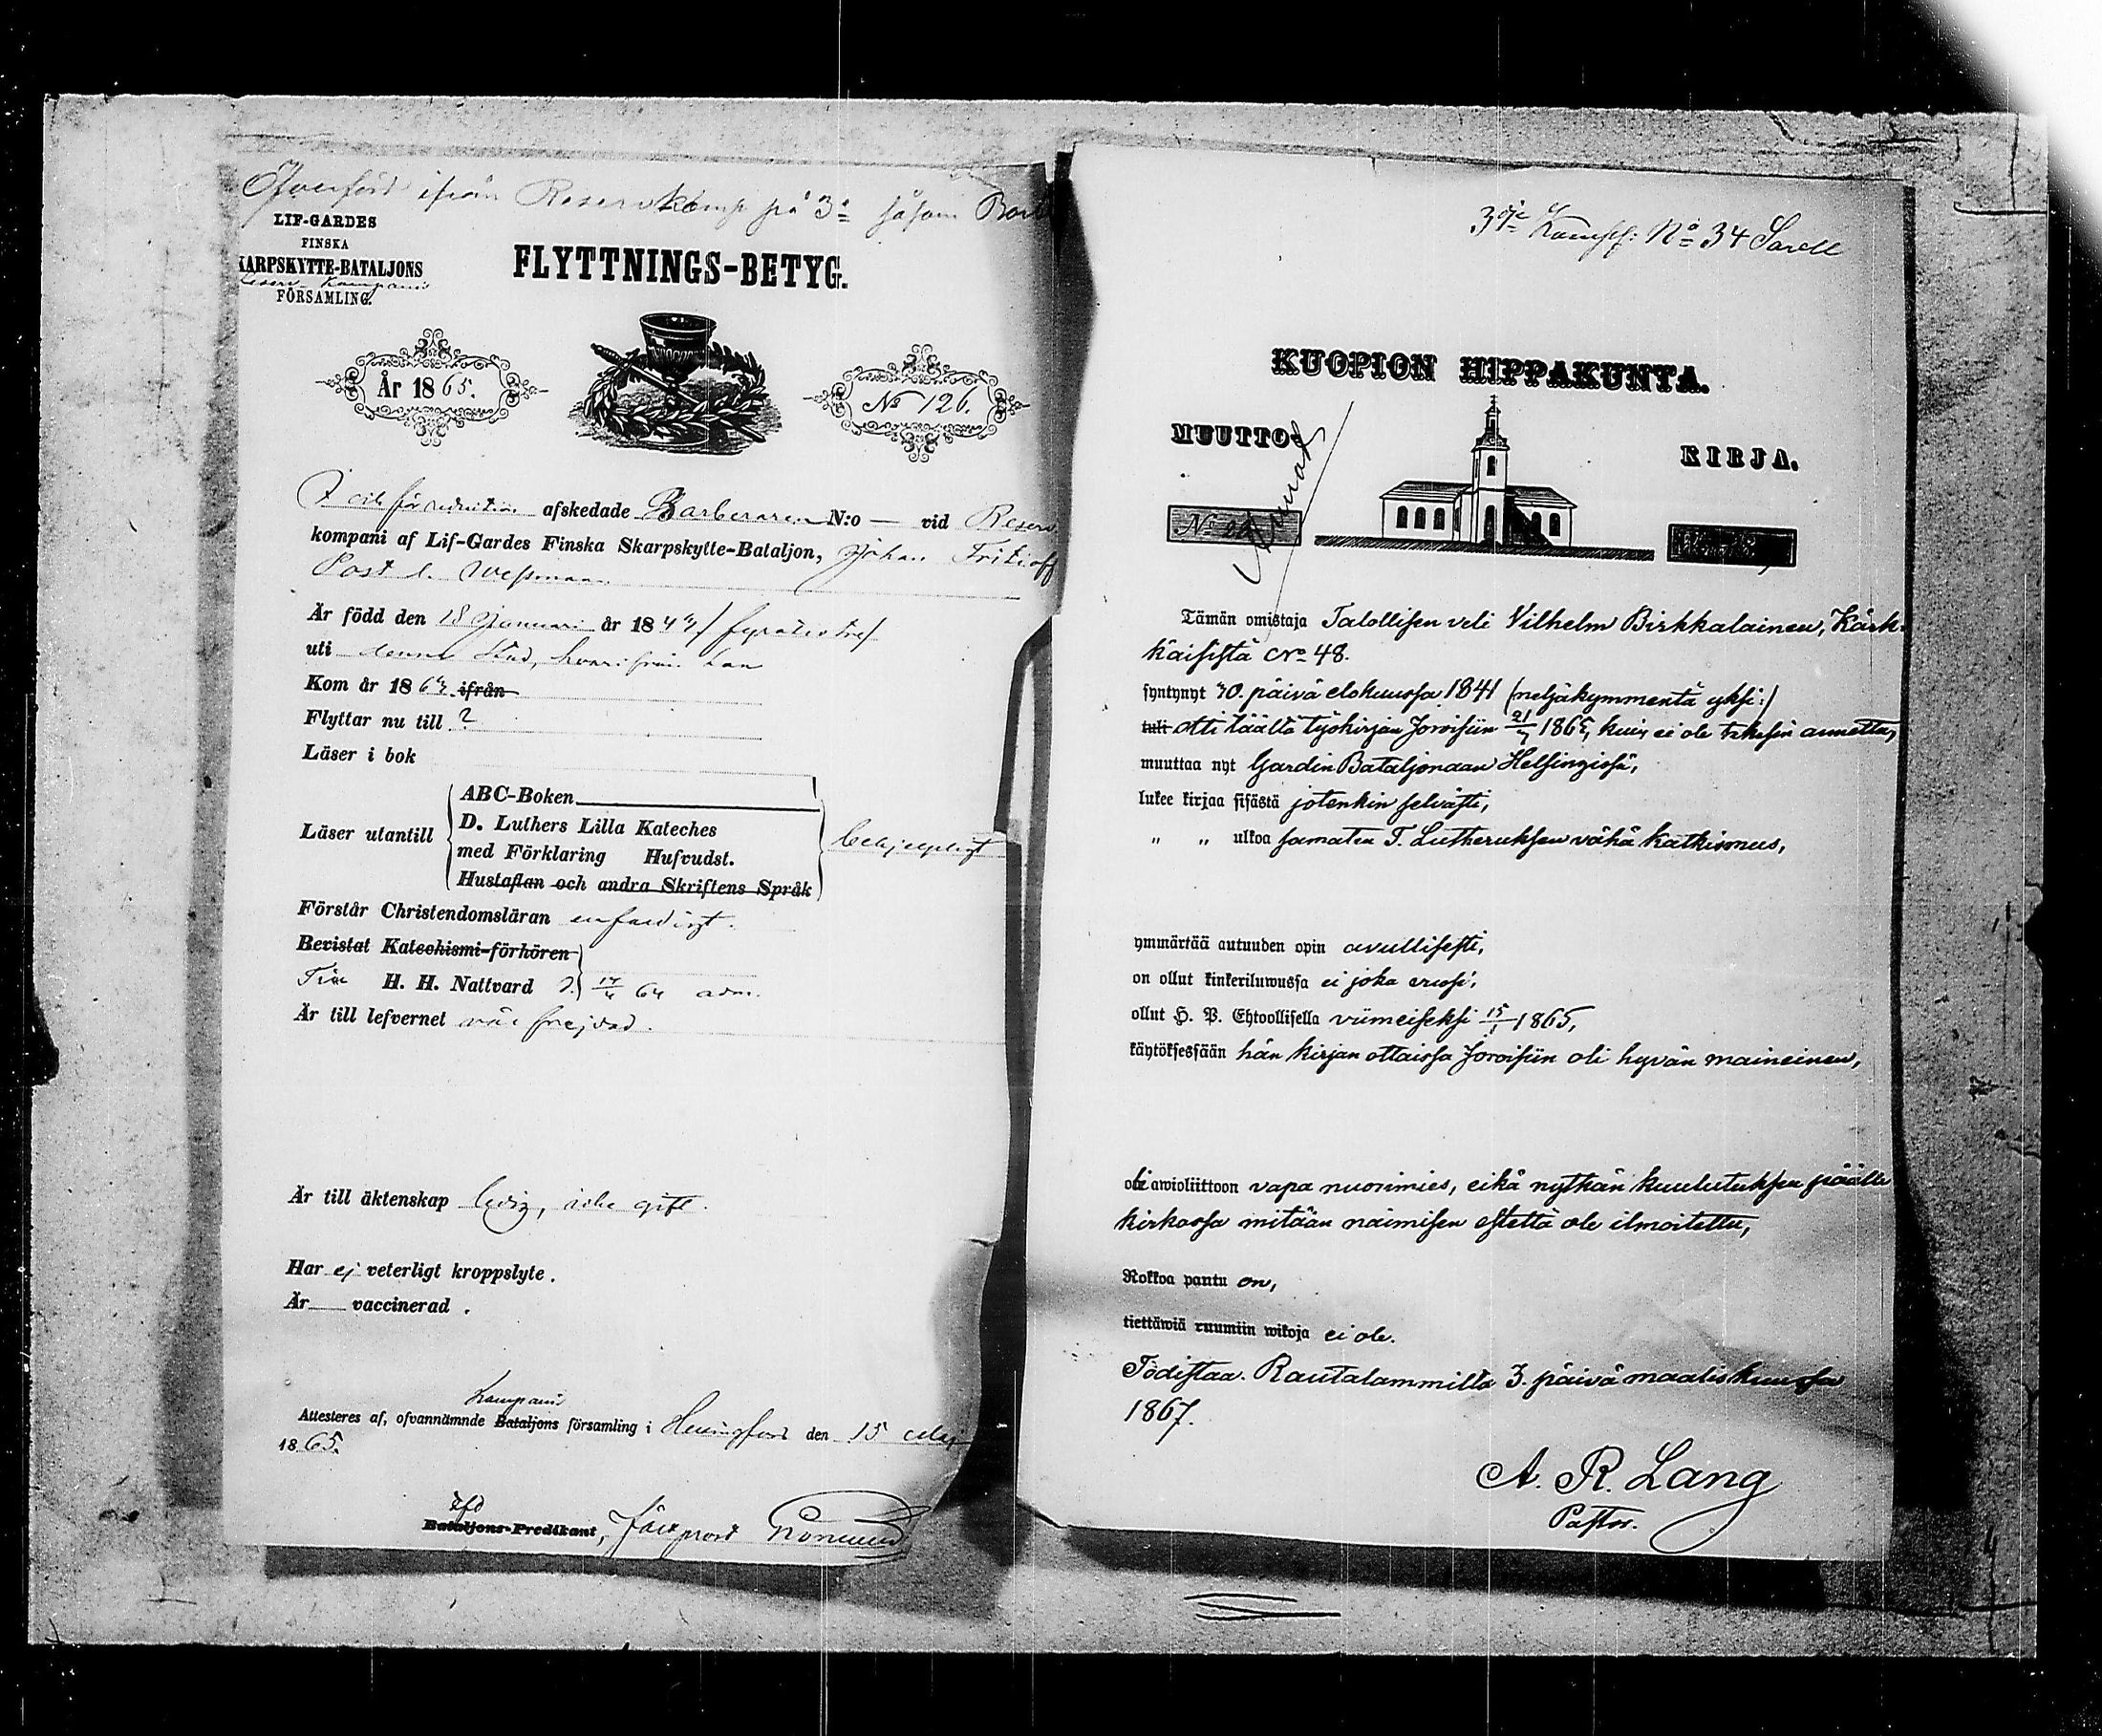 Öfverförd ifrån Reservkomp på 3e såsom
LIF-GARDES
FINSKA
KARPSKYTTE-BATALJONS
Reserv-Kompanis
FÖRSAMLING.
FLYTTNINGS-BETYG.
År 1865.
No 126.
afskedade Barberaren N:o — vid Reserv
kompani af Lif-Gardes Finska Skarpskytte-Bataljon, Johan Fritioff
Är född den 18 Januari år 1843 / fyratiotre /
uti denna stad, hvarifrån han
Kom år 1863 ifrån
Flyttar nu till ?
Läser i bok
Läser utantill
ABC-Boken
D. Luthers Lilla Kateches
med Förklaring Hufvudst.
Hustaflan och andra Skriftens Språk
behjelpligt
Förstår Christendomsläran enfaldigt.
Bevistat Katechismi-förhören
H. H. Nattvard 64 adm.
Är till lefvernet väl frejdad.
Är till äktenskap ledig, icke gift.
Har ej veterligt kroppslyte.
Är vaccinerad.
Kompanis
Attesteres af, ofvannämnde Bataljons församling i Helsingfors den 15 Maj
1865.
Bataljons-Predikant,
3dje Komp: No 34 Sarell
KUOPION HIPPAKUNTA.
MUUTTO- KIRJA.
Tämän omistaja Talollisen veli Vilhelm Birkkalainen, Kärk-
kaisista No 48.
syntynyt 30. päivä elokuussa 1841 (neljäkymmentä yksi:)
tuli otti täältä työkirjan Joroisiin 21/7 1865, kuin ei ole takasin annettu,
muuttaa nyt Gardin Bataljonaan Helsingissä,
lukee kirjaa sisästä jotenkin selvästi,
" " ulkoa samaten T. Lutheruksen vähä katkismus,
ymmärtää autuuden opin avullisesti,
on ollut kinkeriluwussa ei joka vuosi,
ollut H. P. Ehtoollisella viimeiseksi 15/1 1865,
käytöksessään hän kirjan ottaissa Joroisiin oli hyvän maineinen,
oli awioliittoon vapa nuorimies, eikä nytkän kuulutuksen päälle
kirkossa mitään naimisen estettä ole ilmoitettu,
Rokkoa pantu on,
tiettäwiä ruumiin wikoja ei ole.
Todistaa. Rautalammilta 3. päivä maaliskuussa
1867.
A. R. Lang
Pastor.